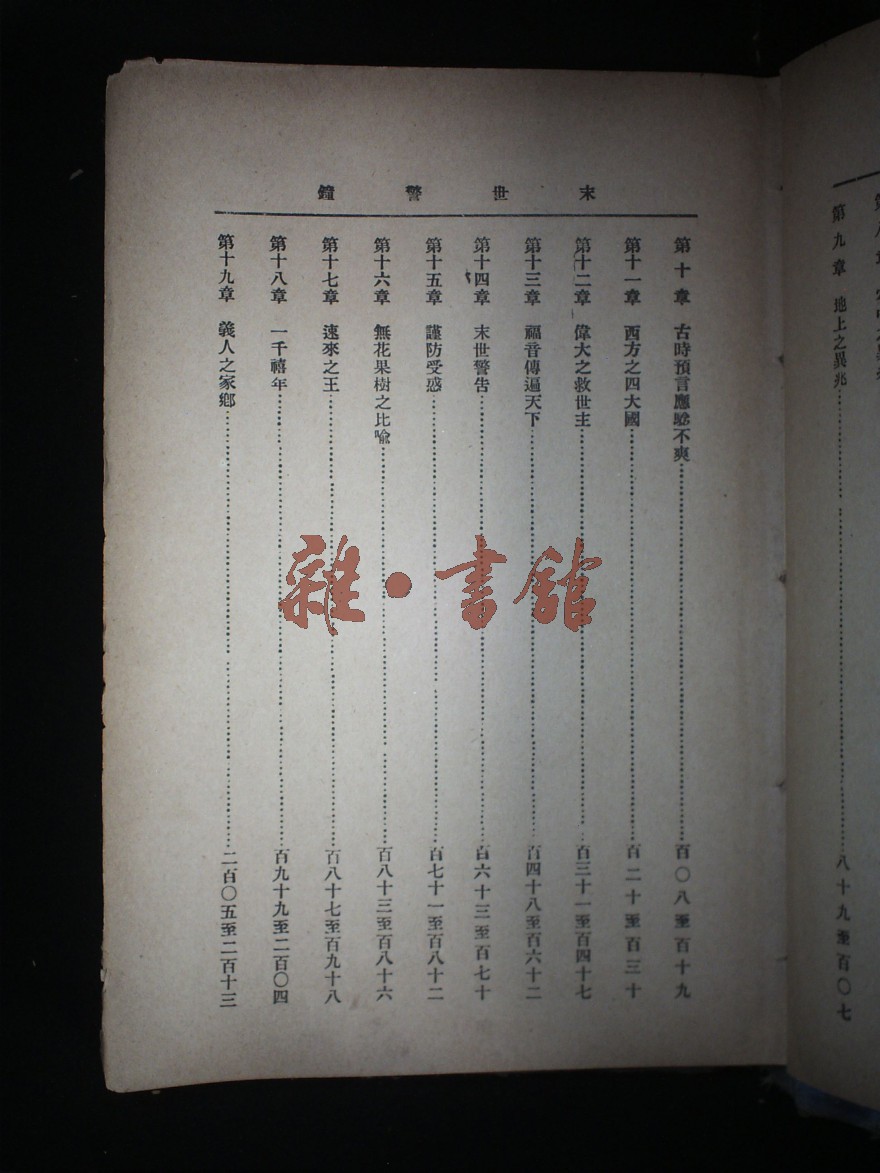 末世警鐘
第十章 古時預言應驗不爽……百〇八至百十九
第十一章 西方之四大國……百二十至百三十
第十二章 偉大之救世主……百三十一至百四十七
第十三章 福音傳遍天下……百四十八至百六十二
第十四章 末世警告……百六十三至百七十
第十五章 謹防受惑……百七十一至百八十二
第十六章 無花果樹之比喩……百八十三至百八十六
第十七章 速來之王……百八十七至百九十八
第十八章 一千禧年……百九十九至二百〇四
第十九章 義人之家鄉……二百〇五至二百十三
第九章 地上之異兆……八十九至百〇七
雜·書館